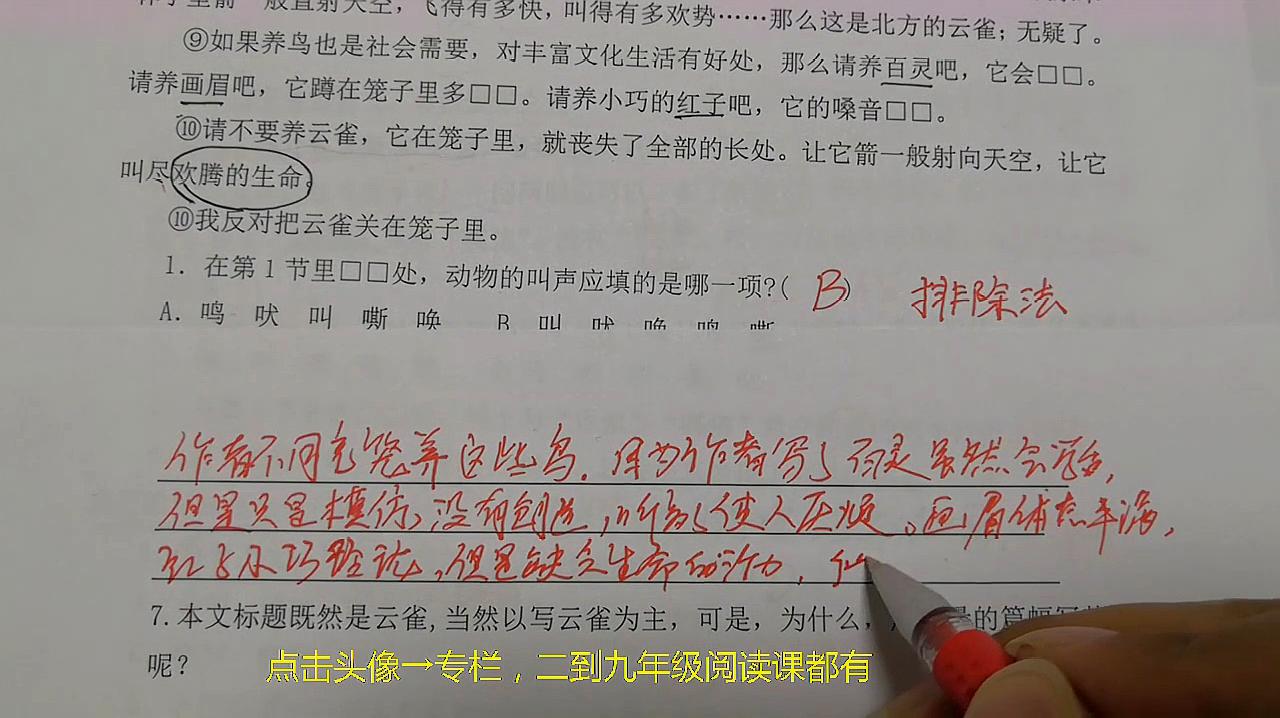 种子里箭一般直射天空，飞得有多快，叫得有多欢势……那么这是北方的云雀；无疑了。
⑨如果养鸟也是社会需要，对丰富文化生活有好处，那么请养百灵吧，它会□□。
请养画眉吧，它蹲在笼子里多□□。请养小巧的红子吧，它的嗓音□□。
⑩请不要养云雀，它在笼子里，就丧失了全部的长处。让它箭一般射向天空，让它
叫尽欢腾的生命。
⑩我反对把云雀关在笼子里。
1．在第1节里□□处，动物的叫声应填的是哪一项?( B ) 排除法
A．鸣 吠 叫 嘶 唤 B 叫 吠 唤 鸣 嘶
作者不同意笼养这些鸟。因为作者写了百灵虽然会学舌，
但是只是模仿，没有创造，听多了使人厌烦。画眉体态丰满，
红子小巧玲珑，但是缺乏生命的活力，
7.本文标题既然是云雀,当然以写云雀为主，可是，为什么，的篇幅写
呢？
点击头像→专栏，二到九年级阅读课都有